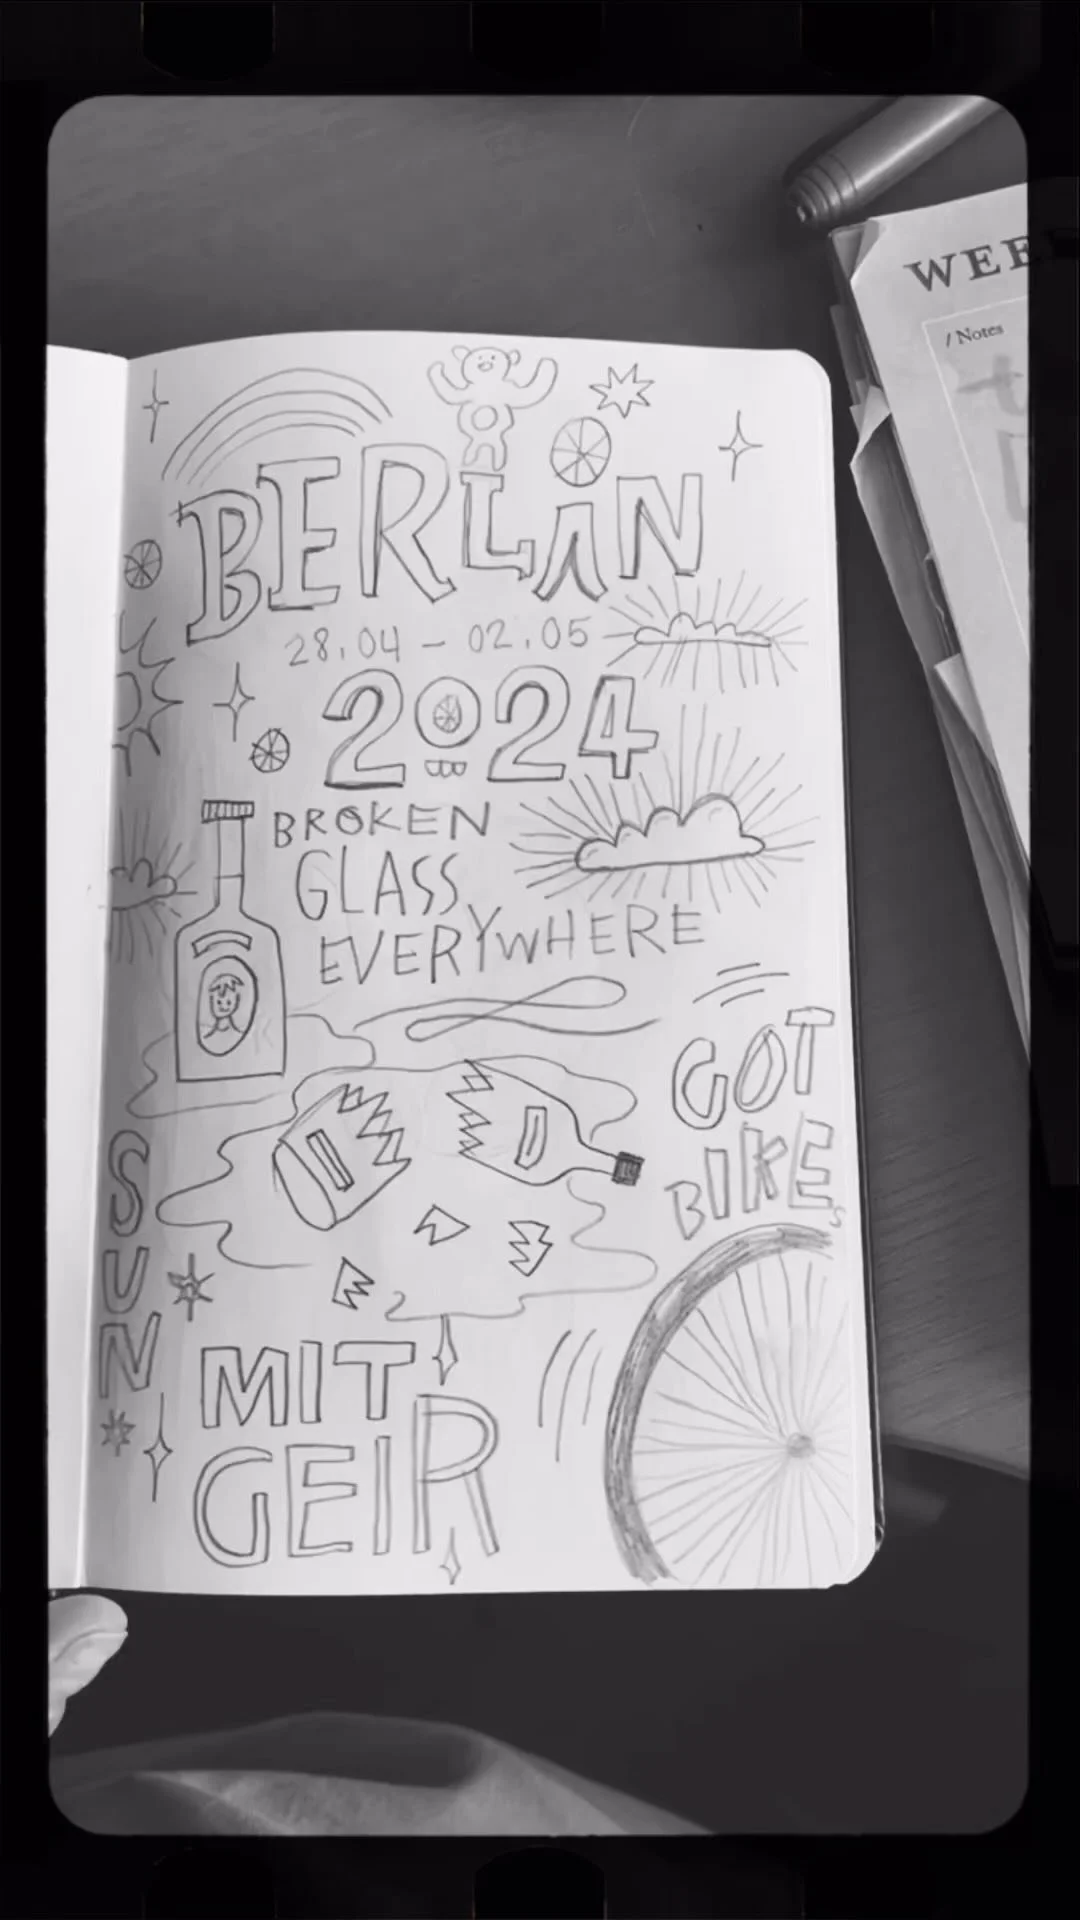 WEE
/ Notes
BERLiN
28.04 – 02.05
2024
BROKEN
GLASS
EVERYWHERE
GOT
BIKEs
SUN
MIT
GEIR